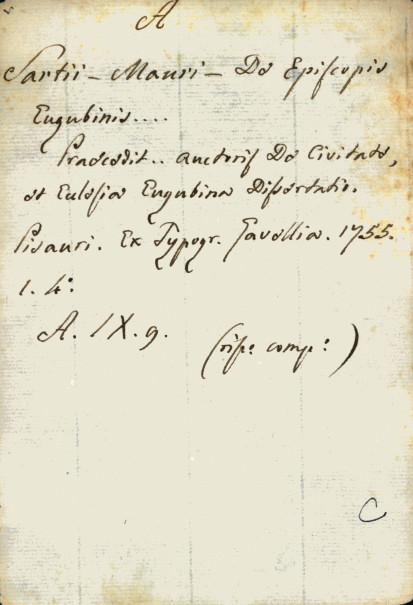 A
Sartii - Mauri - De Episcopis
Eugubinis....
Praecedit.. auctoris De Civitate,
et Eclesia Eugubina Dissertatio.
Pisauri. Ex Typogr. Gavellia. 1755.
1. 4:
A. IX. 9. (risp: comp: )
C